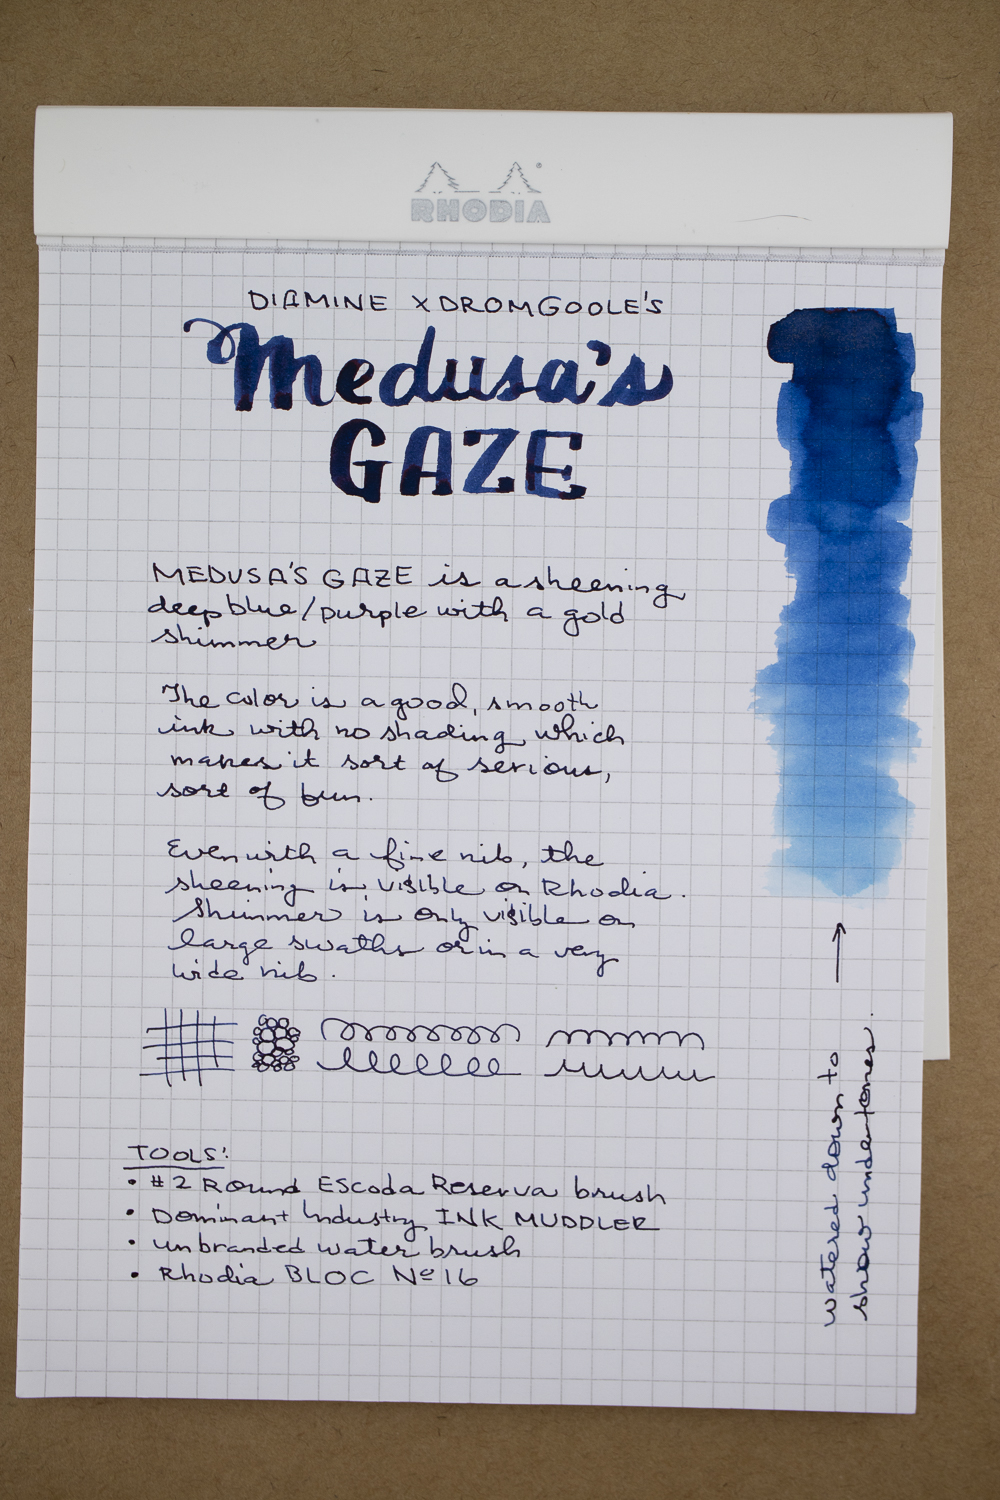 RHODIA
DIAMINE X DROMGOOLE'S
Medusa's
GAZE
MEDUSA'S GAZE is a sheening
deep blue/purple with a gold
shimmer
The color is a good, smooth
ink with no shading, which
makes it sort of serious,
sort of fun.
Even with a fine nib, the
sheening is visible on Rhodia.
Shimmer is only visible on
large swaths or in a very
wide nib.
TOOLS:
• #2 Round Escoda Reserva brush
• Dominant Industry INK MUDDLER
• unbranded water brush
• Rhodia BLOC Nº 16
watered down to
show undertones.